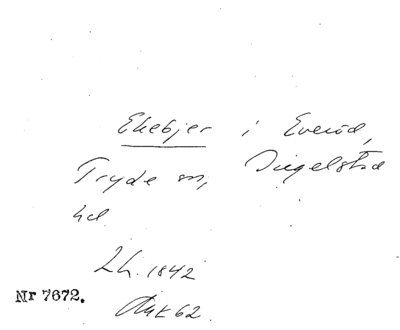 Ekebjer i Everöd,
Tryde sn, Ingelstad
hd.
Lh. 1842
Nr 7672.